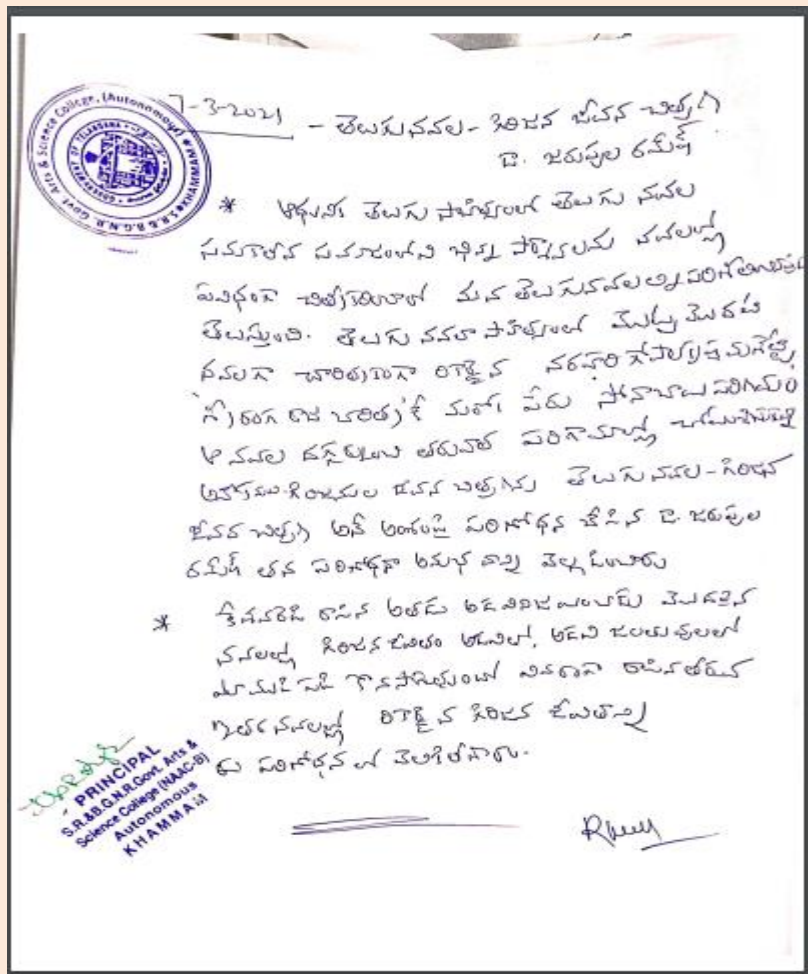 S.R.& B.G.N.R. Govt. Arts & Science College, (Autonomous) KHAMMAM
GOVERNMENT OF TELANGANA
7-3-2021 - తెలుగు నవల - గిరిజన జీవన చిత్రణ
డా. జరుపుల రమేష్
* ఆధునిక తెలుగు సాహిత్యంలో తెలుగు నవల
సమకాలీన సమాజంలోని భిన్న పార్శ్వాలను నవలల్లో
ఏవిధంగా చిత్రీకరించారో మన తెలుగు నవలల్ని పరిశీలిస్తే
తెలుస్తుంది. తెలుగు నవలా సాహిత్యంలో మొట్ట మొదటి
నవలగా చారిత్రకంగా రికార్డైన నరహరి గోపాలకృష్ణమశెట్టి
శ్రీరంగ రాజ చరిత్ర కే మరో పేరు సోనాబాయి పరిణయం
ఆ నవల దగ్గర్నుంచి తరువాత పరిణామాల్లో
గిరిజనుల జీవన చిత్రణను తెలుగు నవల - గిరిజన
జీవన చిత్రణ అనే అంశంపై పరిశోధన చేసిన డా. జరుపుల
రమేష్ తన పరిశోధనా అనుభవాన్ని వెల్లడించారు
* కేశవరెడ్డి రాసిన అతడు అడవిని జయించాడు మొదలైన
నవలల్లో గిరిజన జీవితం అడవిలో, అడవి జంతువులతో
రాసిన తీరును
ఇతర నవలల్లో రికార్డైన గిరిజన జీవితాన్ని
ఈ పరిశోధనలో వెలికితీశారు.
PRINCIPAL
S.R.&B.G.N.R.Govt. Arts &
Science College (NAAC-B)
Autonomous
KHAMMAM